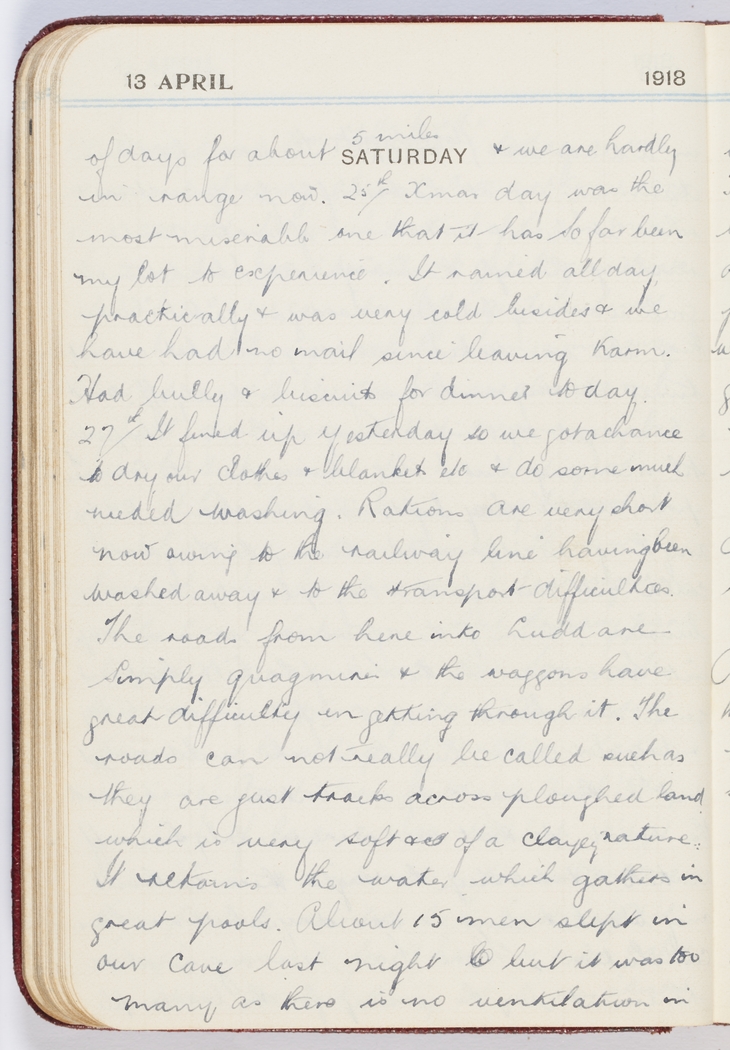 13 APRIL 1918
5 miles
of days for about SATURDAY & we are hardly
in range now. 25th/ Xmas day was the
most miserable one that it has so far been
my lot to experience. It rained all day
practically & was very cold besides & we
have had no mail since leaving Karm.
Had bully & biscuits for dinner to day.
27th/ It fined up yesterday so we got a chance
to dry our clothes & blankets etc & do some much
needed washing. Rations are very short
now owing to the railway line having been
washed away & to the transport difficulties.
The roads from here into Ludd are
simply quagmires & the waggons have
great difficulty in getting through it. The
roads can not really be called such as
they are just tracks across ploughed land
which is very soft & of a clayey nature.
It retains the water which gathers in
great pools. About 15 men slept in
our cave last night but it was too
many as there is no ventilation in